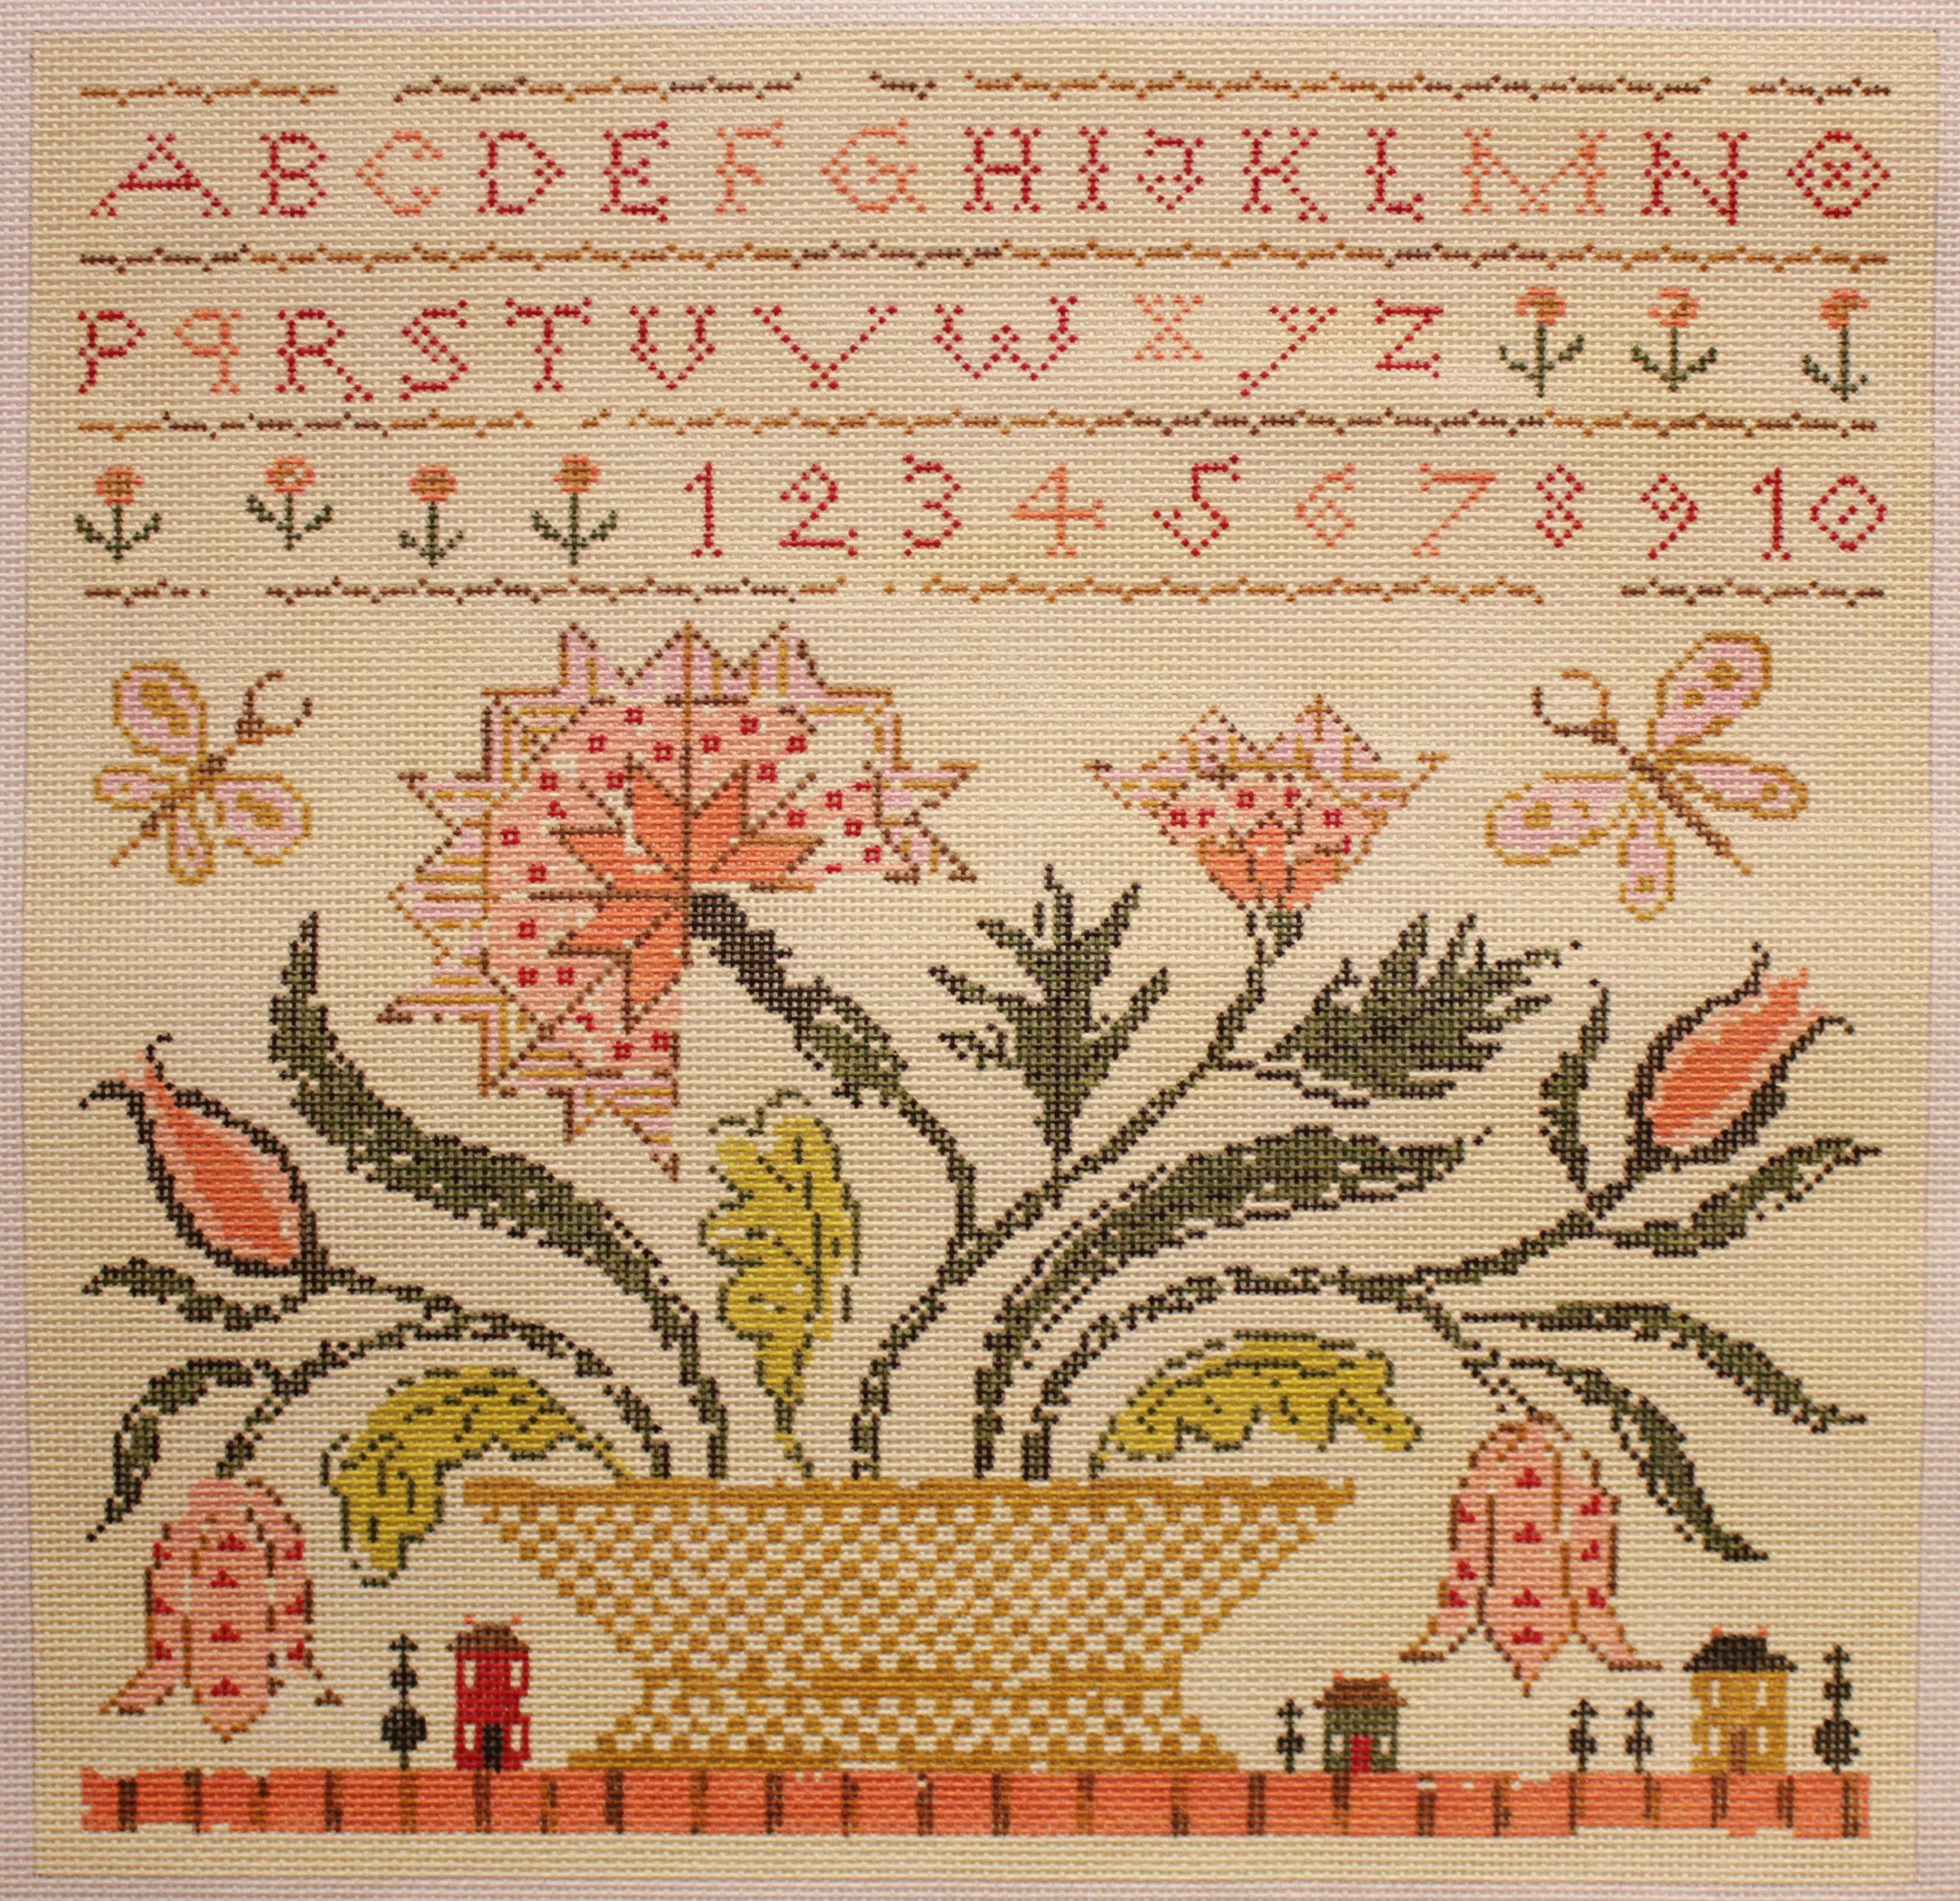 A B C D E F G H I J K L M N O
P Q R S T U V W X Y Z
1 2 3 4 5 6 7 8 9 10